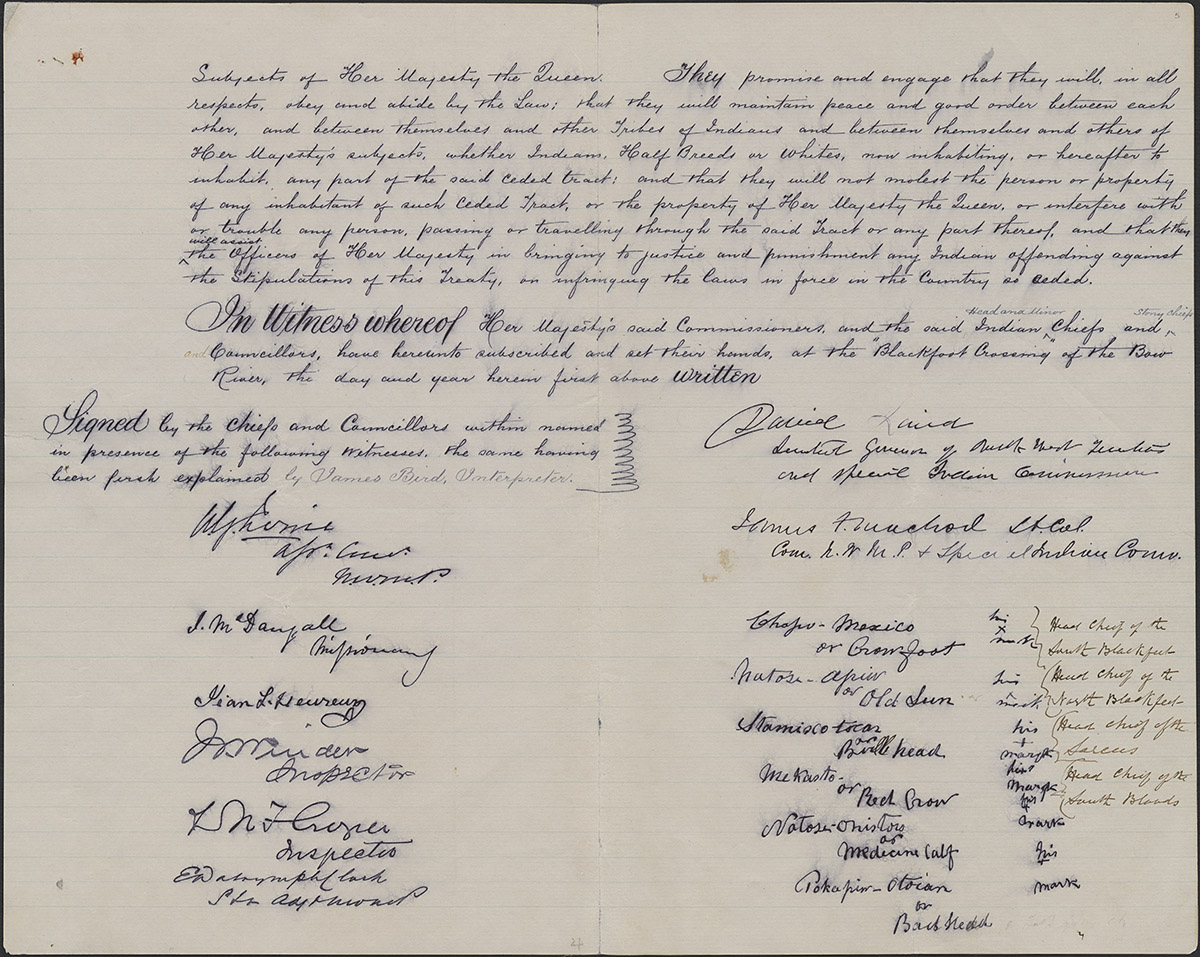 Subjects of Her Majesty the Queen. They promise and engage that they will, in all
respects, obey and abide by the Law; that they will maintain peace and good order between each
other, and between themselves and other Tribes of Indians and between themselves and others of
Her Majesty's subjects, whether Indians, Half Breeds or Whites, now inhabiting, or hereafter to
inhabit, any part of the said ceded tract; and that they will not molest the person or property
of any inhabitant of such Ceded Tract, or the property of Her Majesty the Queen, or interfere with
or trouble any person, passing or travelling through the said Tract or any part thereof, and that they
will assist
^ the Officers of Her Majesty in bringing to justice and punishment any Indian offending against
the Stipulations of this Treaty, or infringing the Laws in force in the Country so ceded.
Head and Minor Stony Chiefs
In Witness whereof Her Majesty's said Commissioners, and the said Indian ^ Chiefs and ^
and Councillors, have hereunto subscribed and set their hands, at the "Blackfoot Crossing" of the Bow
River, the day and year herein first above written
Signed by the Chiefs and Councillors within named
in presence of the following witnesses, the same having
been first explained by James Bird, Interpreter.
A. G. Irvine
Asst. Com.
N.W.M.P.
J. McDougall
Missionary
Jean L'Heureux
W. Winder
Inspector
L N F Crozier
Inspector
E Dalrymple Clark
David Laird
Lieutenant Governor of North West Territories
and Special Indian Commissioner
James F. Macleod Lt. Col.
Com. N. W. M. P. & Special Indian Comr.
Chapo-Mexico his
or Crowfoot x mark
Head Chief of the
South Blackfeet
Natose-apiw his
or Old Sun mark
Head Chief of the
North Blackfeet
Stamiscotocar his
or Bull head + mark
Head Chief of the
Sarcees
Mekasto- his
or Red Crow mark
Head Chief of the
South Bloods
Natose-Onistors his mark
or
Medicine Calf his
Pokapiw-Otoian mark
or
Bad Head